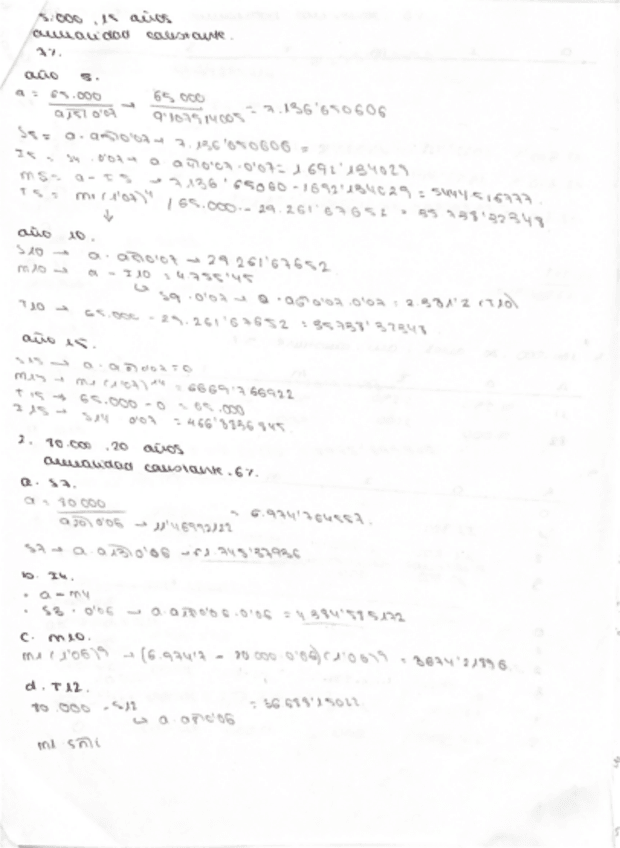 5.000, 15 años
anualidad constante.
7%.
año 5.
a = 65.000 / a15|0'07 → 65.000 / 9'107914005 = 7.136'650606
S5 = a · a |0'07 → 7.136'650606 =
I5 = S4 · 0'07 → a · a |0'07 · 0'07 = 1.692'134029
m5 = a - I5 → 7.136'65060 - 1692'134029 = 5444'516777.
T5 = m1 (1'07)⁴ / 65.000 - 29.261'67652 = 35738'32348
↓
año 10.
S10 → a · a5|0'07 → 29.261'67652
m10 → a - I10 = 4755'45
↳ S9 · 0'07 → a · a6|0'07 · 0'07 = 2.381'2 (I10)
T10 → 65.000 - 29.261'67652 = 35738'32348
año 15.
S15 → a · a |0'07 = 0
m15 → m1 (1'07)¹⁴ = 6669'766922
T15 → 65.000 - 0 = 65.000
I15 → S14 · 0'07 = 466'8836845
2. 80.000, 20 años
anualidad constante. 6%.
a. S7.
a = 80.000 / a20|0'06 → 11'46992122 = 6.974'764557.
S7 → a · a13|0'06 → 61.743'37936
b. I4.
• a - m4
• S3 · 0'06 → a · a17|0'06 · 0'06 = 4384'585172
c. m10.
m1 (1'06)⁹ → (6.974'7 - 80.000 · 0'06)(1'06)⁹ = 3674'21896
d. T12.
80.000 - S12 = 36.689'15022
↳ a · a8|0'06
m1 Sn|i